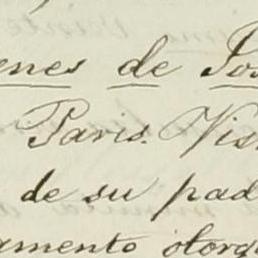 enes de Jos
Paris. Vis
de su pad
amento otorg